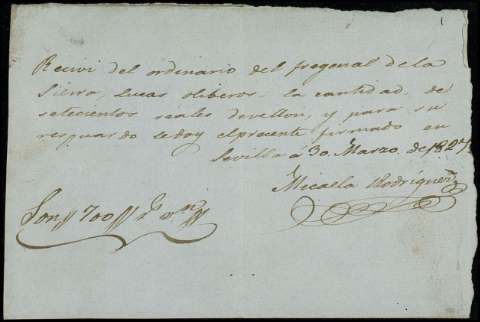 Recivi del ordinario del fregenal de la
Sierra, Lucas oliberos, la cantidad de
setecientos reales devellon, y para su
resguardo ledoy elpresente firmado en
Sevilla á 30, Marzo, de 1827,
Micaela Rodriguez
Son// 700// rs vn//